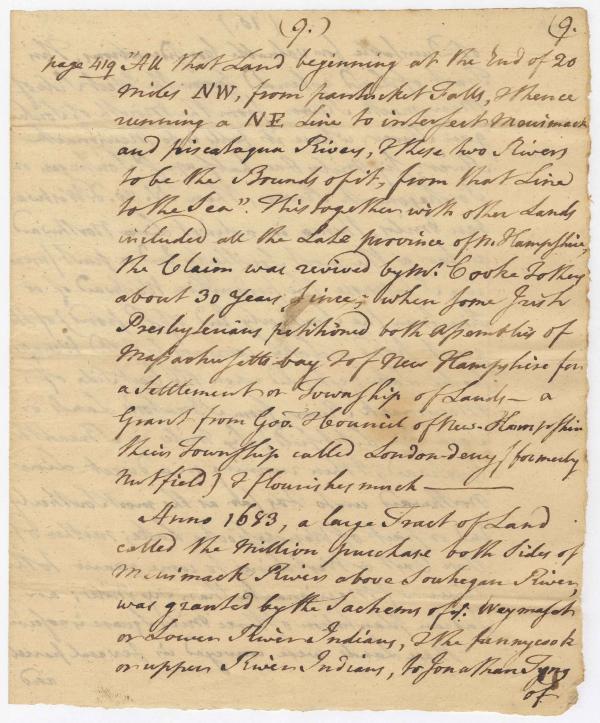 (9.) (9.
page 419 "All that Land beginning at the End of 20
miles NW, from pantucket Falls, & thence
running a NE Line to interfect Merrimack
and piscataqua Rivers, & these two Rivers
to be the Bounds of it, from that Line
to the Sea". This together with other Lands
included all the Late province of N. Hampshire,
the Claim was revived by Mr. Cooke & others
about 30 Years Since; when Some Irish
Presbyterians petitioned both Assemblies of
Massachusetts-bay & of New Hampshire for
a Settlement or Township of Lands — a
Grant from Govr. & Council of New-Hampshire
their Township called London-derry (formerly
Nutfield) & flourishes much —
Anno 1683, a large Tract of Land
called the Million purchase both Sides of
Merrimack River above Souhegan River,
was granted by the Sachems of ye. Waymaset
or Lower River Indians, & the pennycook
or upper River Indians, to Jonathan Tyng
of